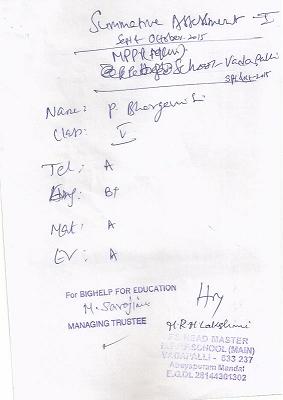 Summative Assessment - I
Sept October - 2015
MPPR School Vadapalli
Sept Oct - 2015
Name: P. Bhargavi
Class: V
Tel: A
Eng: B+
Mat: A
EV: A
For BIGHELP FOR EDUCATION
M. Sarojini
MANAGING TRUSTEE
H.R.M Lakshmi
HEAD MASTER
SCHOOL (MAIN)
VADAPALLI - 533 237
Atreyapuram Mandal